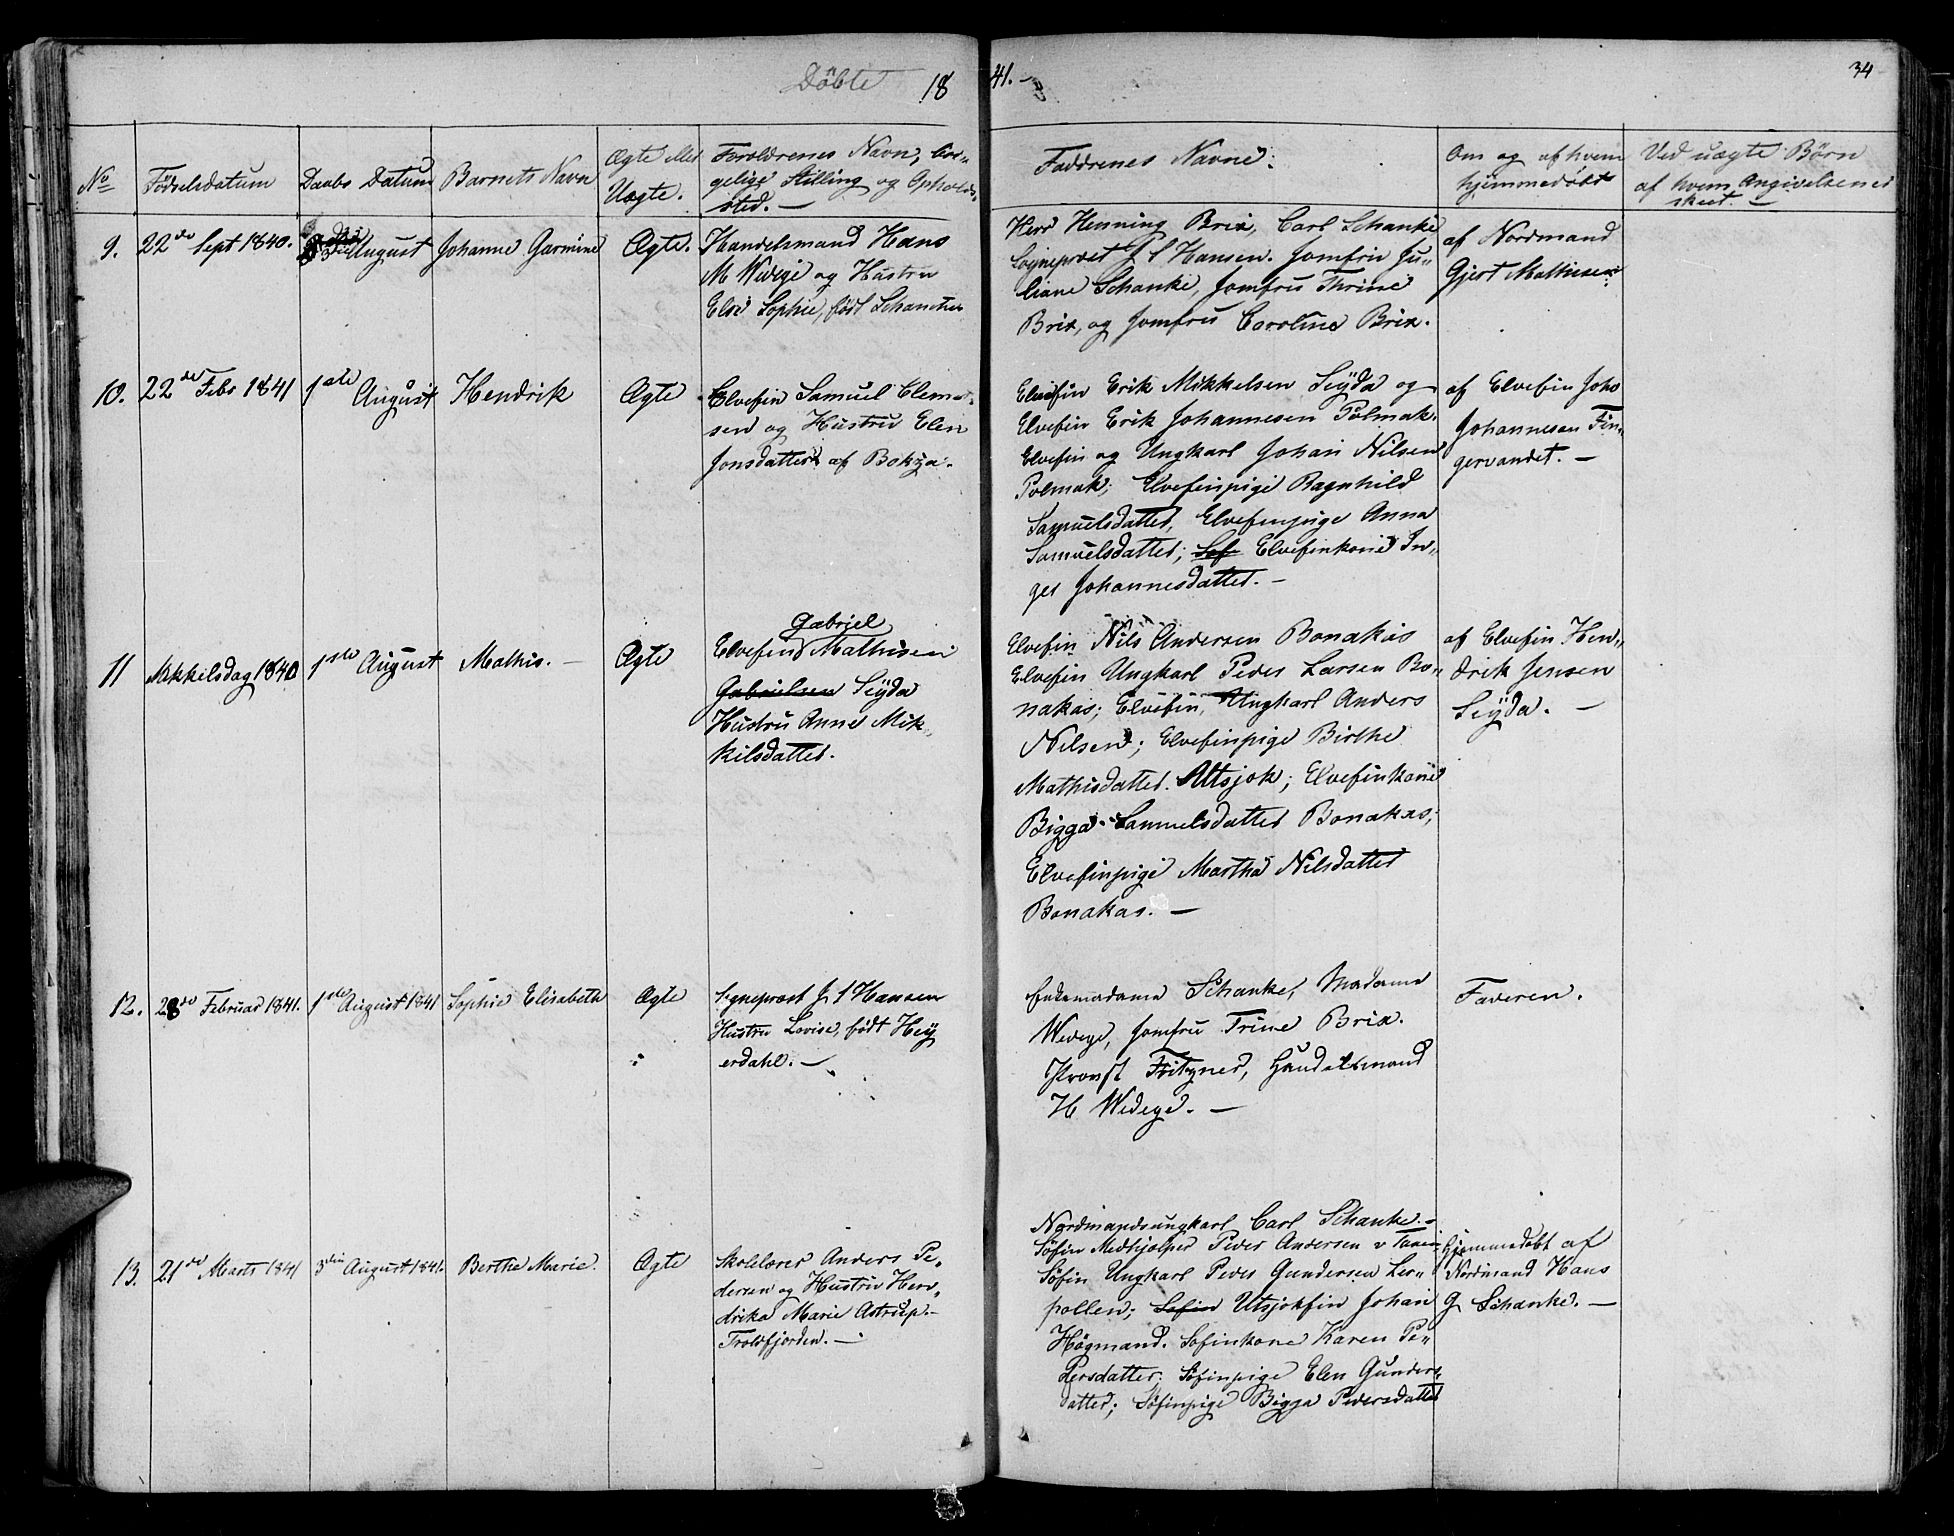 Döbte 1841.
34
No
Födselsdatum
Daabs Datum
Barnets Navn
Ægte eller
Uægte.
Forældrenes Navn, bor„
gelige Stilling og Opholds„
sted. —
Faddrenes Navne.
Om og af hvem
hjemmedöbt
Ved uægte Börn
af hvem Angivelsene
skeet. —
9. 22de Sept 1840.
August
Johanne Garmine
Ægte.
Handelsmand Hans
M Wedege og Hustru
Else Sophie, född Schancke
Herr Henning Brix, Carl Schanke
Sogneprest J S Hansen. Jomfru Ju„
liane Schanke, Jomfru Thrine
Brix, og Jomfru Caroline Brix.
af Nordmand
Gjert Mathisen
10. 22de Febr 1841
1ste August
Hendrik
Ægte
Elvefin Samuel Clemet„
sen og Hustru Elen
Jonsdatter af Bokza.
Elvefin Erik Mikkelsen Seÿda og
Elvefin Erik Johannesen Polmak.
Elvefin og Ungkarl Johan Nilsen
Polmak; Elvefinpige Ragnhild
Samuelsdatter, Elvefinpige Anna
Samuelsdatter; Sef Elvefinkone In„
ger Johannesdatter. —
af Elvefin John
Johannesen Fin„
gervandet. —
11 Mikkilsdag 1840
1ste August
Mathis. —
Ægte
Gabriel
Elvefin Mathisen
Gabrielsen Seÿda
Hustru Anne Mik„
kilsdatter.
Elvefin Nils Andersen Bonakas
Elvefin Ungkarl Peder Larsen Bo„
nakas; Elvefin, Ungkarl Anders
Nilsen; Elvefinpige Birthe
Mathisdatter Utsjok; Elvefinkone
Bigga Samuelsdatter Bonakas;
Elvefinpige Martha Nilsdatter
Bonakas. —
af Elvefin Hen„
drik Jensen
Seÿda. —
12. 28de Februar 1841.
1ste August 1841
Sophie Elisabeth
Ægte
Sogneprest J S Hansen
Hustru Lovise, född Heÿ
erdahl. —
Enkemadame Schanke, Madame
Wedege, Jomfru Trine Brix.
Provst Fritzner, Handelsmand
H Wedege. —
Faderen.
13. 21de Marts 1841
3die August 1841.
Bertha Marie.
Ægte
Skolelærer Anders Pe„
dersen og Hustru Hen„
drika Marie Astrup.—
Troldfjorden. —
Nordmandsungkarl Carl Schanke. —
Söfin Medhjælper Peder Andersen v Tanen
Söfin Ungkarl Peder Gundersen Ler„
pollen; Sofin Utsjokfin Johan
Högmand. Sofinkone Karen Pe„
dersdatter; Söfinpige Elen Gunders„
datter; Söfinpige Bigga Pedersdatter
Hjemmedöbt af
Nordmand Hans
G Schanke. —